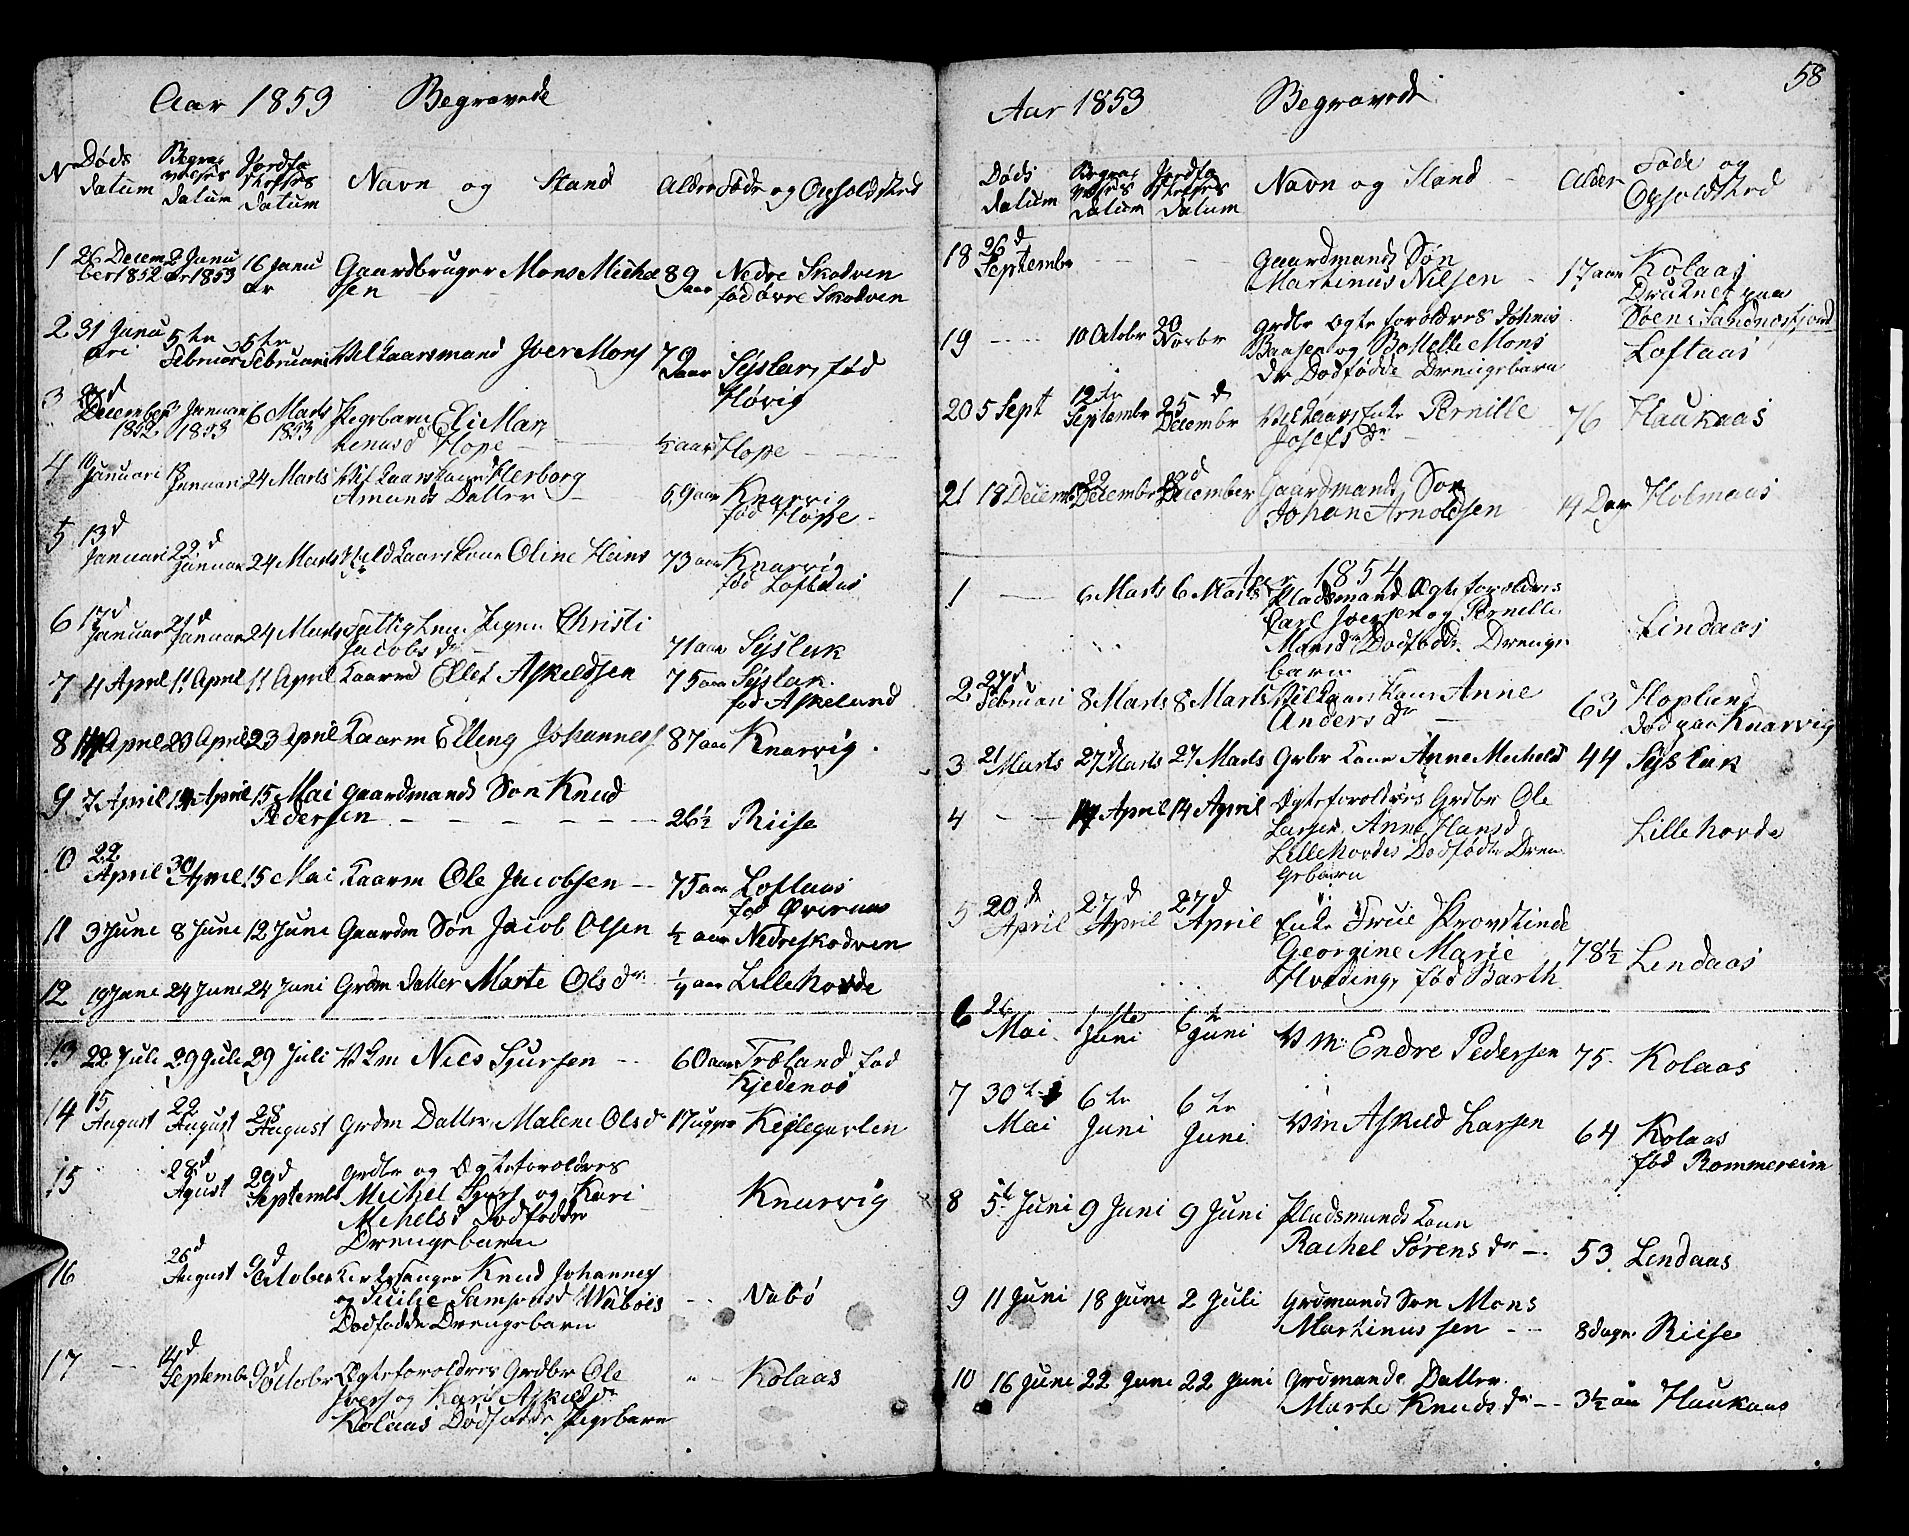 Aar 1853 Begravede
No Døds datum Begravelses datum Jordfæstelses datum Navn og Stand Alder Føde og Opholdsted
1 26 December 1852 2 Januar 1853 16 Januar Gaardbruger Mons Michelsen 89 aar Nedre Skodven
fød øvre Skodven
2 31 Januari 5te Februar 5te Februari Vilkaarsmand Iver Mons 79 aar Syslak, fød
Høvig
3 December 1852 Januar 1853 6 Marts 1853 Pigebarn Eli Mar
tenusd Hope ½ aar Hope
4 Januari 18 Januari 24 Marts Vilkaarskone Herborg
Amunds Datter 69 aar Knarvig
fød Hope
5 13d Januari 22d Januar 24 Marts Vilkaarskone Oline Hans
dr 73 aar Knarvig
fød Loftaas
6 17d Januar 21d Januar 24 Marts Fattiglem Pigen Christi
Jacobs dr 71 aar Syslak
7 4 April 11 April 11 April Kaarm Ellet Askeldsen 75 aar Syslak
fød Askeland
8 14 April 23 April 23 April Kaarm Elleng Johannes 87 aar Knarvig
9 7 April 14 April 15 Mai Gaardmands Søn Knud
Pedersen 26½ Riise
10 22 April 30 April 15 Mai Kaarm Ole Jacobsen 75 aar Loftaas
fød Øveraas
11 3 June 8 June 12 Juni Gaardm Søn Jacob Olsen ½ aar Nedreskodven
12 19 June 24 June 24 Juni Grdm Datter Marte Olsdr ¼ aar Lillehorde
13 22 Juli 29 Juli 29 Juli Vkm Niels Sjursen 60 aar Træland fød
Kjedenos
14 15 August 22 August 28 August Grdm Datter Malene Olsd 17 uger Keilegarlen
15 28d Agust 29d Septembr Grdbr og Ægteforoldres
Michel Sjurs og Kari
Mihelsd Dødfødde
Drengebarn Knarvig
16 26d August 9d October Kirkesanger Knud Johannes
og Sicilie Samsonsd Nabøes
Dødfødde Drengebarn Nabø
17 14d Septembr 9d Octobr Ægteforoldres Grdbr Ole
Ivers og Kari Askelsdr
Kolaas Dødfødde Pigebarn Kolaas
58
Aar 1853 Begravede
Døds datum Begravelses datum Jordfæstelses datum Navn og Stand Alder Føde og Opholdsted
18 26d Septembr Gaardmands Søn
Martinus Nilsen 17 aar Kolaas
Druknet paa
Søen Sandnesfjord
19 10 Octobr 20 Novbr Grdbr Ægteforoldres Johnis
Baasen og Botille Mons
dr Dødfødde Drengebarn Loftaas
20 5 Sept 12te Septembr 25d Decembr Vilkaars Enke Pernille
Josefs dr 76 Haukaas
21 18 Decembr 22 Decembr December Gaardmands Søn
Johan Arnoldsen 14 Dage Holmaas
Aar 1854
1 6 Marts 6 Marts Pladsmand Ægteforoldres
Carl Iversen og Pernille
Monsdr Dødfødde Drenge
barn Lindaas
2 27d Februari 8 Marts 8 Marts Vilkaarskone Anne
Anders dr 63 Hoplend
død paa Knarvig
3 21 Marts 27 Marts 27 Marts Grbr Kone Anne Michelsd 44 Syslak
4 14 April 14 April Ægteforoldres Grdbr Ole
Larsen Anne Hansd
Lillehordes Dødfødte Dren
gebarn Lillehorde
5 20d April 27d April 27d April Enke Frue Provstinde
Georgine Marie
Hvoding, fød Barth 78½ Lendaas
6 26 Mai 1ste Juni 6te Juni Vm Endre Pedersen 75 Kolaas
7 30te Mai 6te Juni 6te Juni Vm Askeld Larsen 64 Kolaas
fød Rommereim
8 5te Juni 9 Juni 9 Juni Pladsmands Kone
Rachel Sørens dr 53 Lendaas
9 11 Juni 18 Juni 2 Juli Grdmands Søn Mons
Martinussen 8 dage Riise
10 16 Juni 22 Juni 22 Juni Grdmands Datter
Marte Knuds dr 3½ aar Haukaas